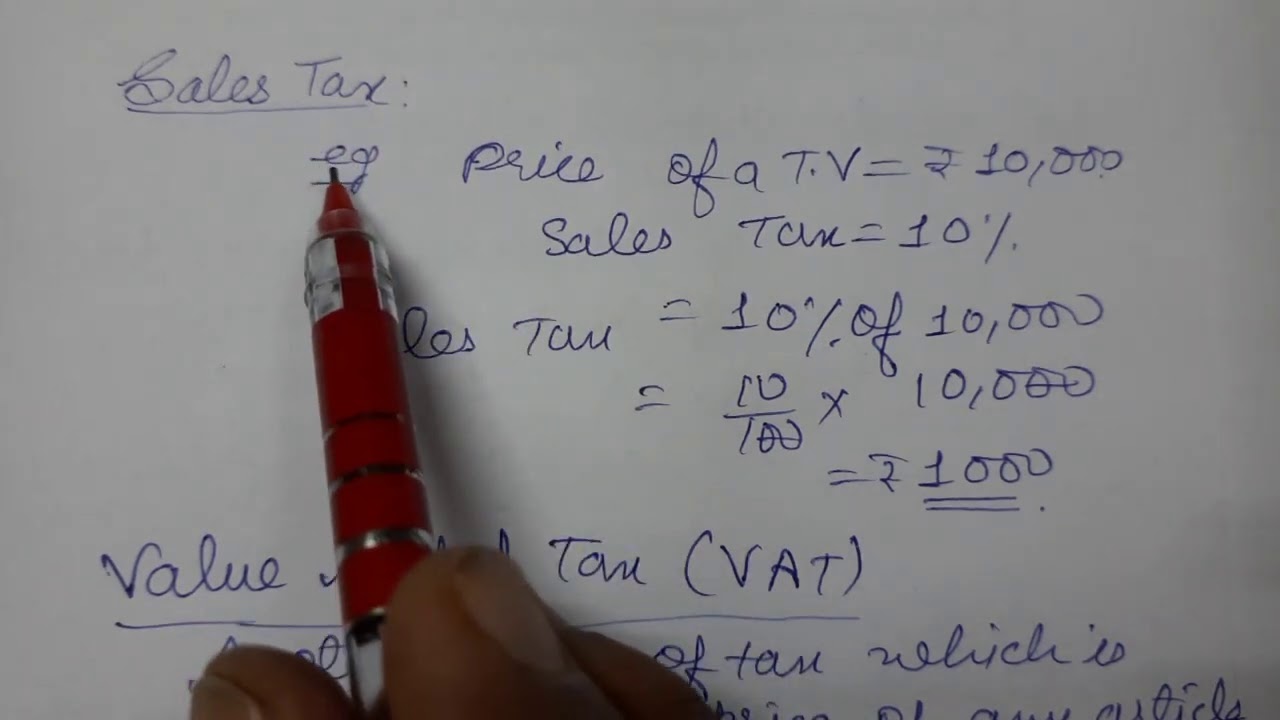 Sales Tax:
eg Price of a T.V = ₹ 10,000
Sales Tax = 10%.
les Tax = 10% of 10,000
= 10/100 × 10,000
= ₹ 1000.
Value Tax (VAT)
of tax which is
price of any article